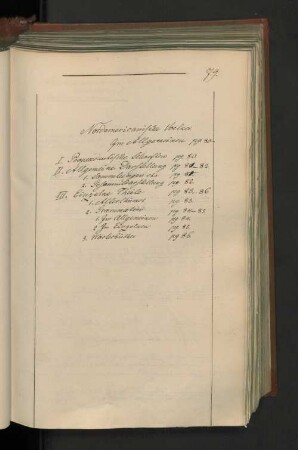 79.
Nordamericanische Völker
Im Allgemeinen pg. 80.
I. Propaedeutische Schriften pg. 80.
II. Allgemeine Darstellung pg. 81-82.
1. Sammelungen etc. pg. 81.
2. Gesammtdarstellung pg. 82.
III. Einzelne Theile pg. 83-86.
1. Alterthümer pg. 83.
2. Grammatik pg. 84-85
1 Im Allgemeinen pg. 84.
2 Im Einzelnen pg. 85.
3. Wörterbücher pg. 86.